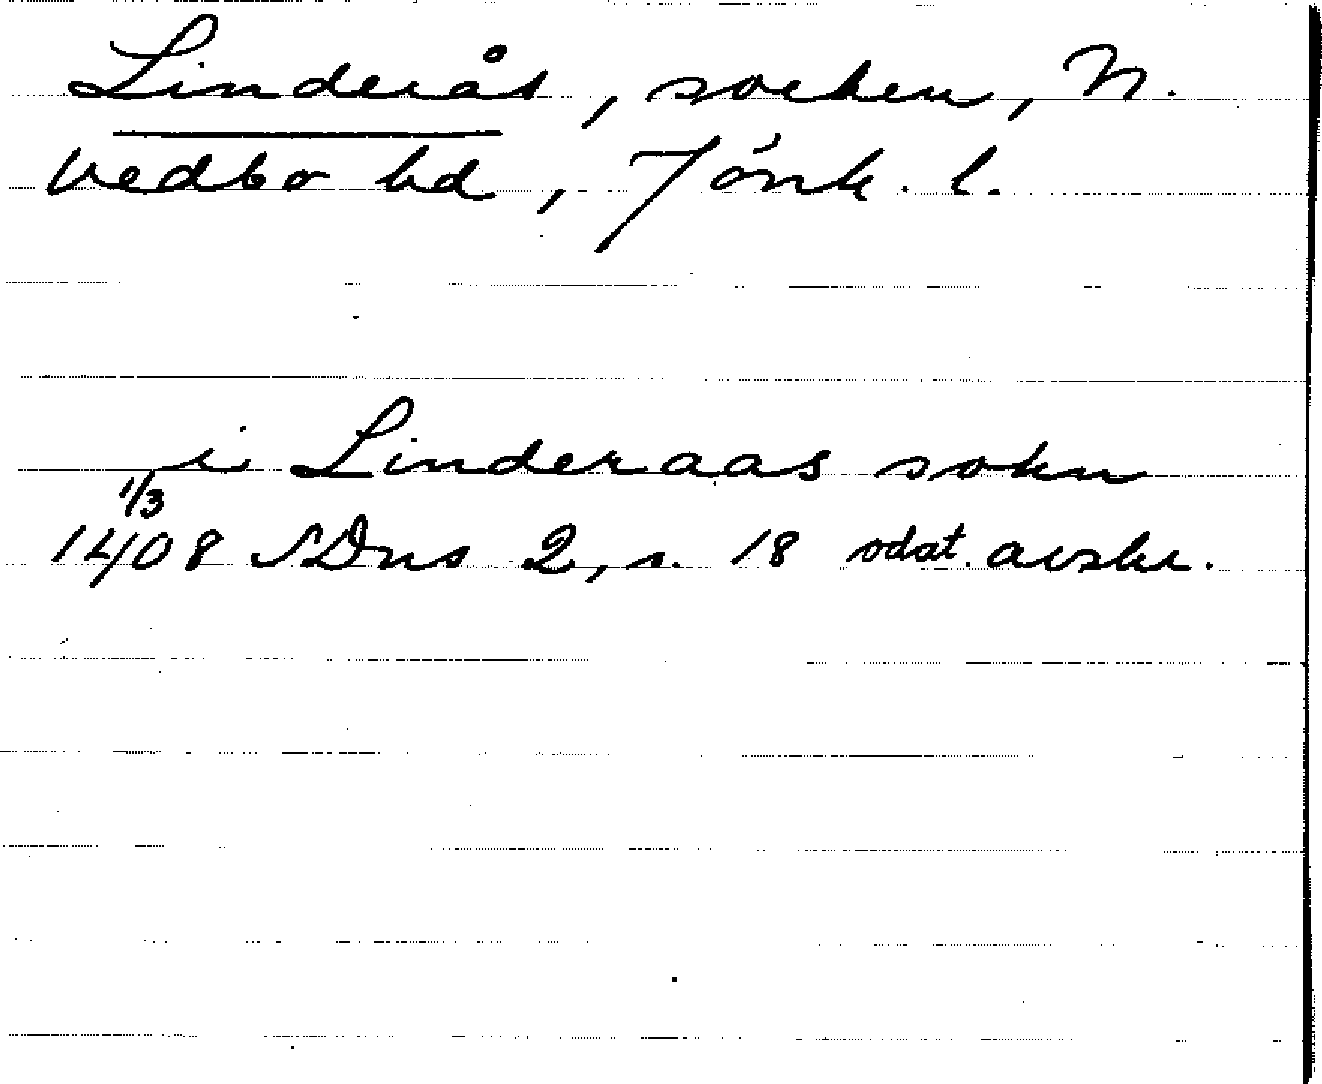 Linderås, socken, N.
Vedbo hd, Jönk. l.
i Linderaas sokn
1/3
1408 SDns 2, s. 18 odat. avskr.